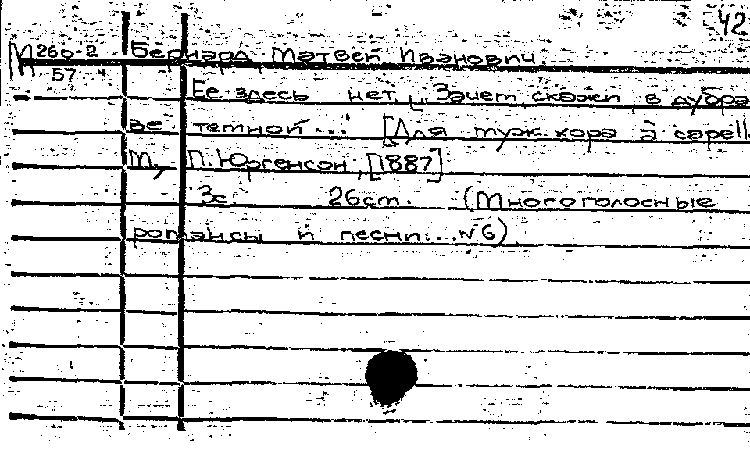 42
М 260-2 Бернард Матвей Иванович
57
Ее здесь нет. Зачем, скажи, в дубра
ве темной... [Для муж. хора a capell
М., П. Юргенсон, [1887]
3с. 26 см. (Многолосные
романсы и песни... №6)